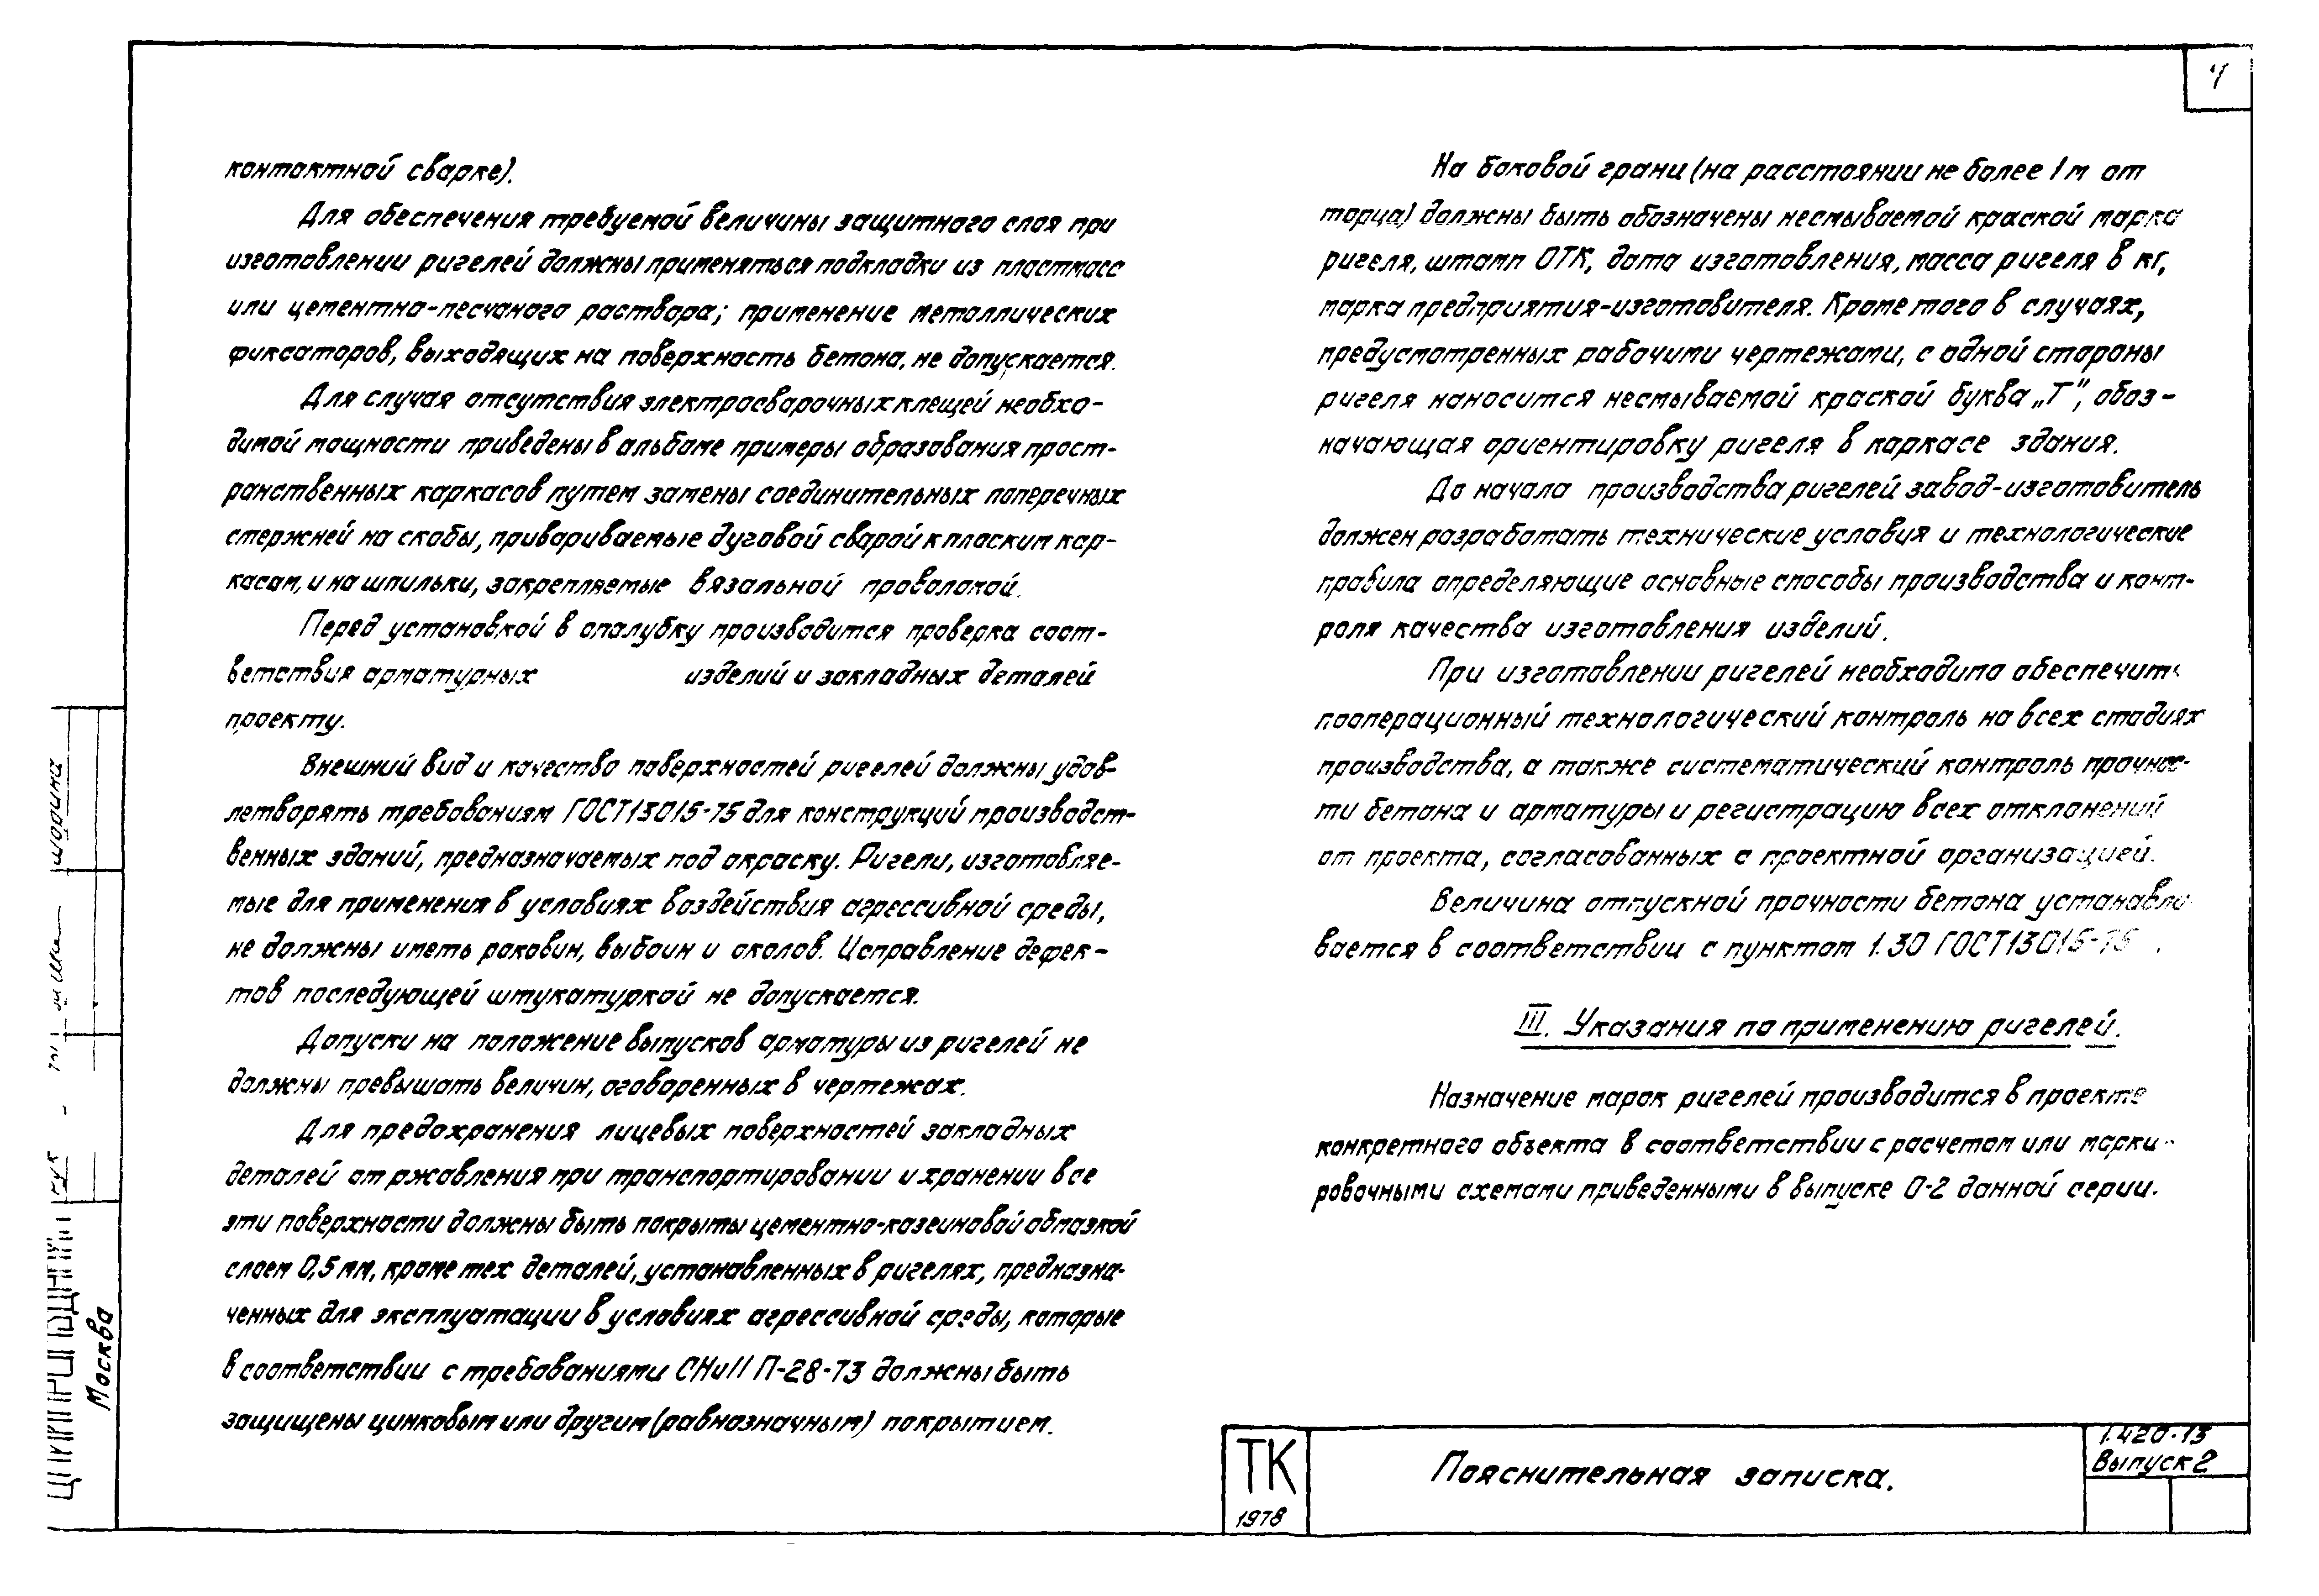 контактной сварке).
Для обеспечения требуемой величины защитного слоя при
изготовлении ригелей должны применяться подкладки из пластмасс
или цементно-песчаного раствора; применение металлических
фиксаторов, выходящих на поверхность бетона, не допускается.
Для случая отсутствия электросварочных клещей необхо-
димой мощности приведены в альбоме примеры образования прост-
ранственных каркасов путем замены соединительных поперечных
стержней на скобы, привариваемые дуговой сварой к плоским кар-
касам, и на шпильки, закрепляемые вязальной проволокой.
Перед установкой в опалубку производится проверка соот-
ветствия арматурных изделий и закладных деталей
проекту.
Внешний вид и качество поверхностей ригелей должны удов-
летворять требованиям ГОСТ 13015-75 для конструкций производст-
венных зданий, предназначаемых под окраску. Ригели, изготовляе-
мые для применения в условиях воздействия агрессивной среды,
не должны иметь раковин, выбоин и околов. Исправление дефек-
тов последующей штукатуркой не допускается.
Допуски на положение выпусков арматуры из ригелей не
должны превышать величин, оговоренных в чертежах.
Для предохранения лицевых поверхностей закладных
деталей от ржавления при транспортировании и хранении все
эти поверхности должны быть покрыты цементно-казеиновой обмазкой
слоем 0,5 мм, кроме тех деталей, установленных в ригелях, предназна-
ченных для эксплуатации в условиях агрессивной среды, которые
в соответствии с требованиями СНиП П-28-73 должны быть
защищены цинковым или другим (равнозначным) покрытием.
На боковой грани (на расстоянии не более 1 м от
торца) должны быть обозначены несмываемой краской марка
ригеля, штамп ОТК, дата изготовления, масса ригеля в кг,
марка предприятия-изготовителя. Кроме того в случаях,
предусмотренных рабочими чертежами, с одной стороны
ригеля наносится несмываемой краской буква „Т", обоз-
начающая ориентировку ригеля в каркасе здания.
До начала производства ригелей завод-изготовитель
должен разработать технические условия и технологические
правила определяющие основные способы производства и конт-
роля качества изготовления изделий.
При изготовлении ригелей необходимо обеспечить
пооперационный технологический контроль на всех стадиях
производства, а также систематический контроль прочнос-
ти бетона и арматуры и регистрацию всех отклонений
от проекта, согласованных с проектной организацией.
Величина отпускной прочности бетона устанавли-
вается в соответствии с пунктом 1.30 ГОСТ 13015-75.
III. Указания по применению ригелей.
Назначение марок ригелей производится в проекте
конкретного объекта в соответствии с расчетом или марки-
ровочными схемами приведенными в выпуске 0-2 данной серии.
ТК
1978
Пояснительная записка.
1.420-13
Выпуск 2
Шорина
Москва